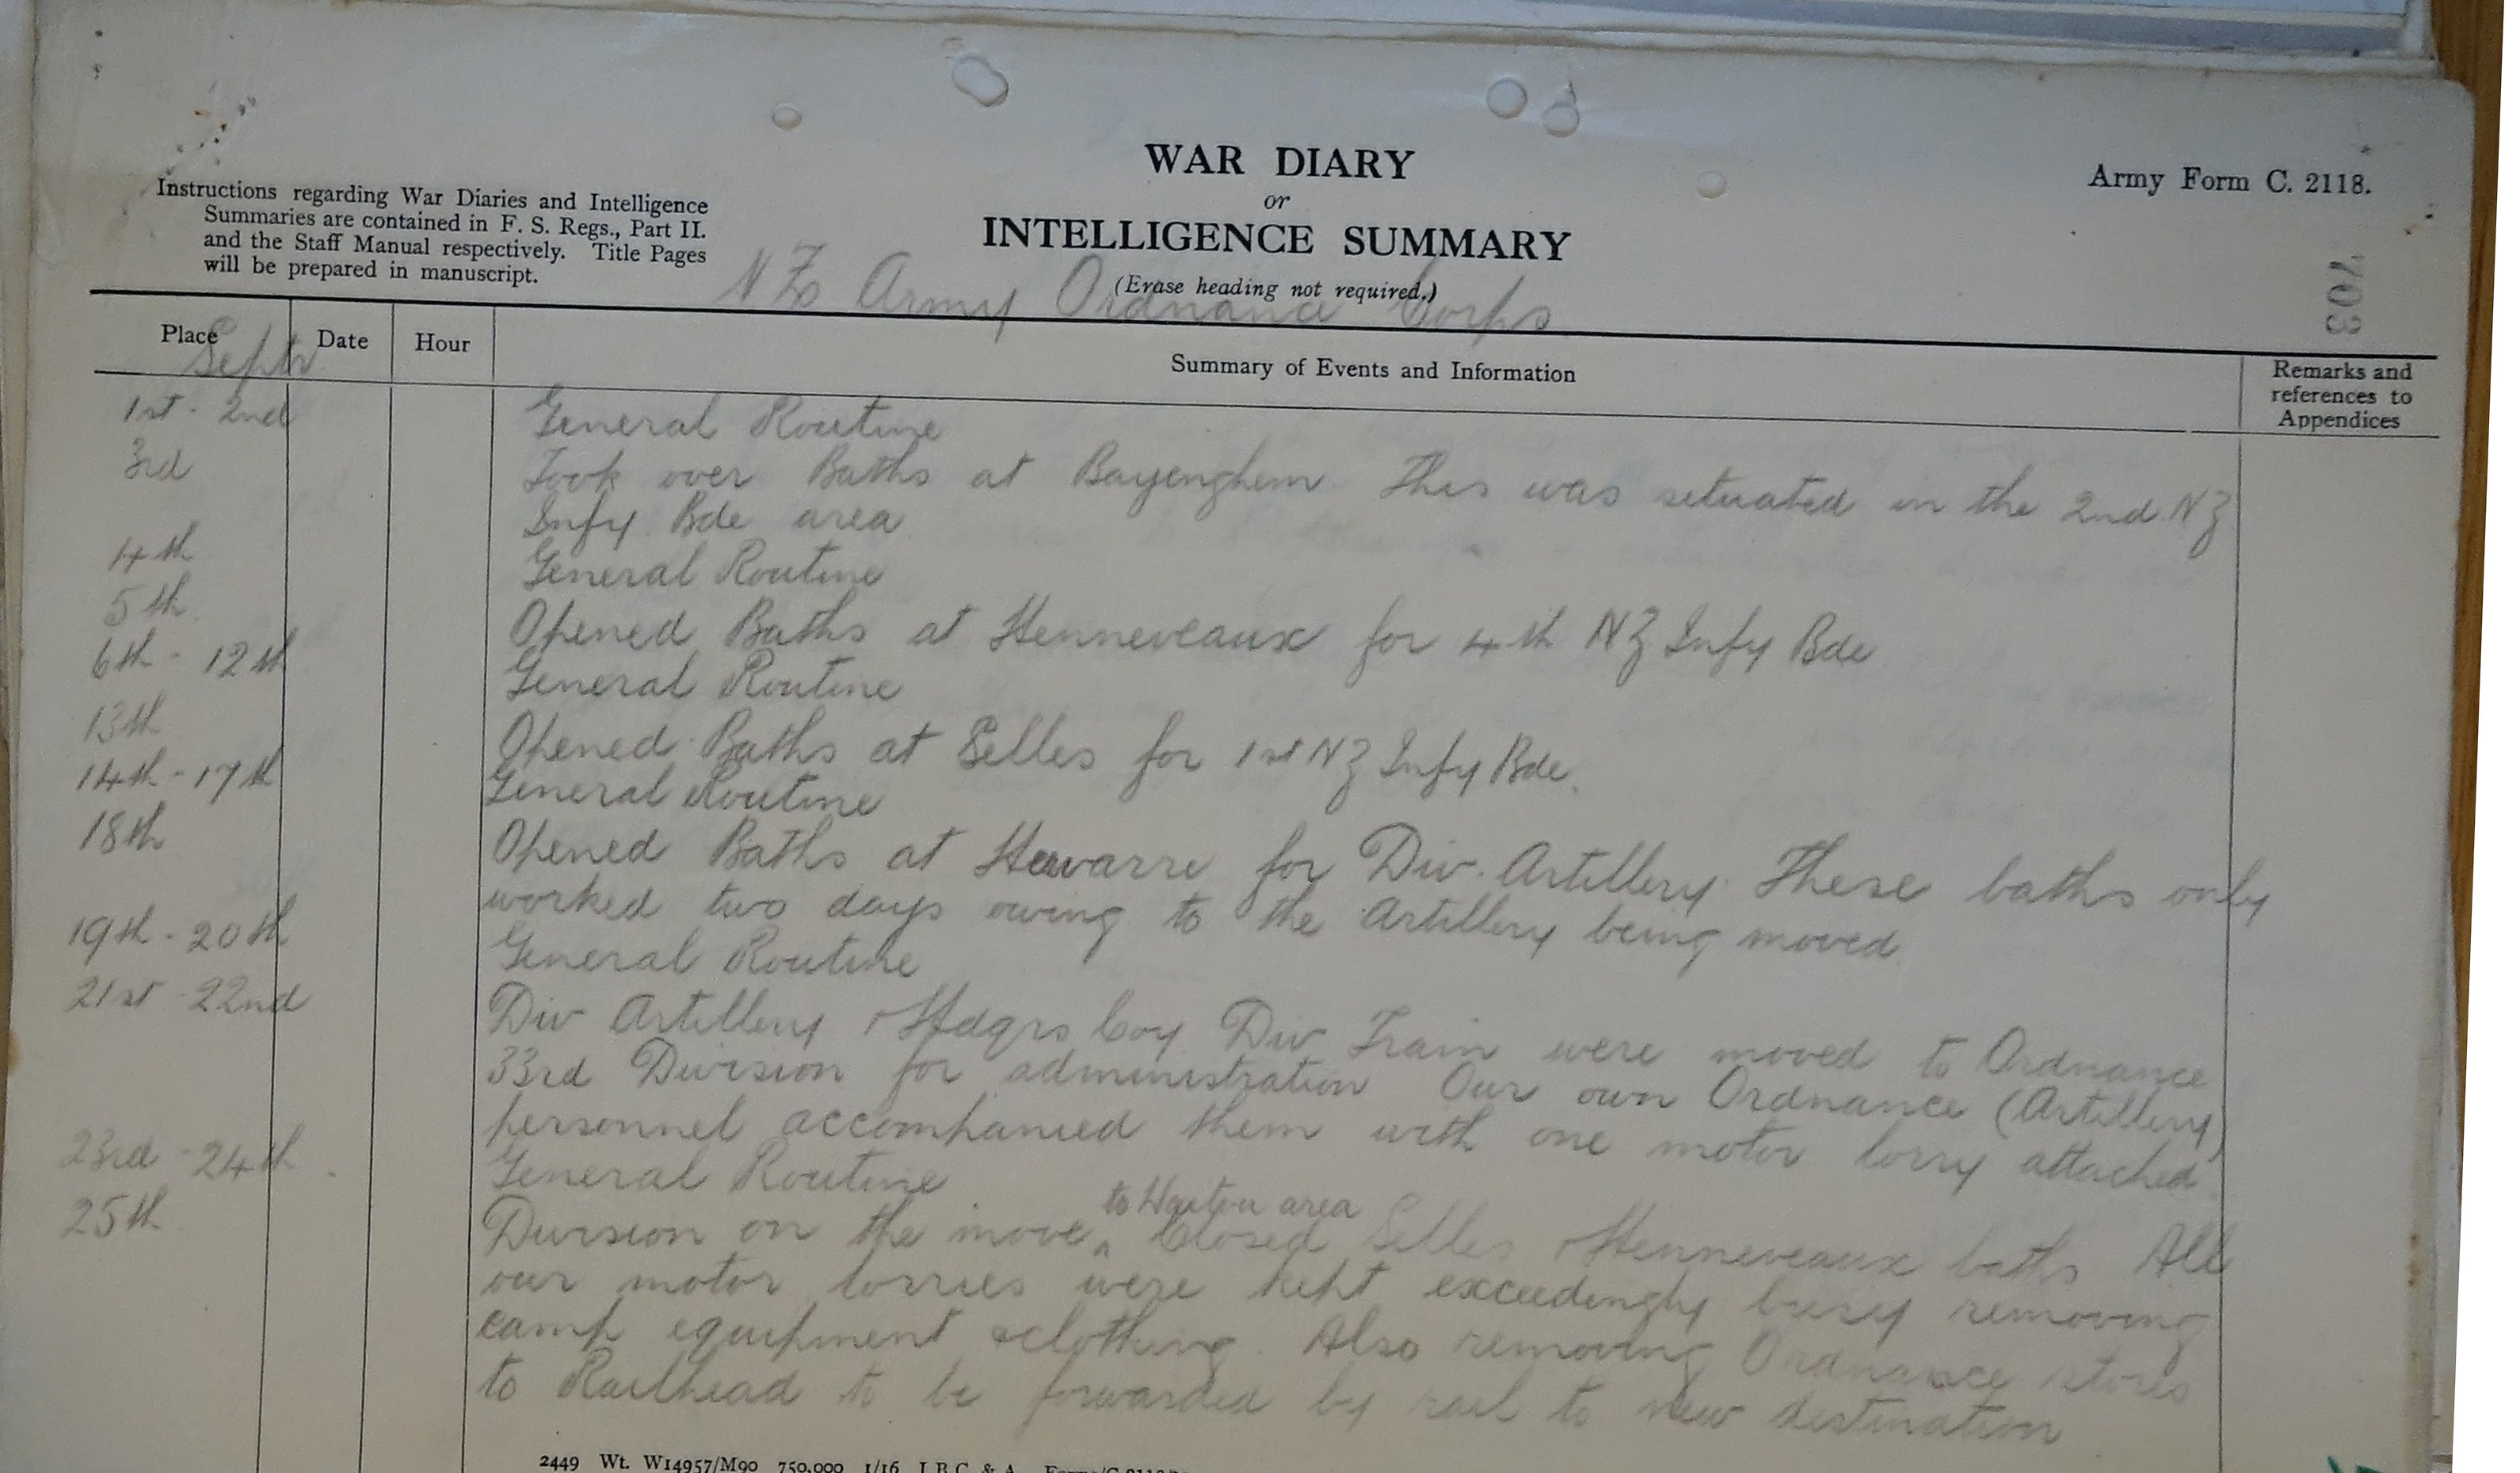 WAR DIARY
or
INTELLIGENCE SUMMARY
(Erase heading not required.)
Army Form C. 2118.
Instructions regarding War Diaries and Intelligence
Summaries are contained in F. S. Regs., Part II.
and the Staff Manual respectively. Title Pages
will be prepared in manuscript.
703
Army Ordnance Corps
Place Date Hour Summary of Events and Information Remarks and
references to
Appendices
Septr
1st - 2nd General Routine
3rd Took over Baths at Bayenghem. This was situated in the 2nd NZ
Infy Bde area
4th General Routine
5th Opened Baths at Henneveaux for 4th NZ Infy Bde
6th - 12th General Routine
13th Opened Baths at Selles for 1st NZ Infy Bde.
14th - 17th General Routine
18th Opened Baths at for Div. Artillery. These baths only
worked two days owing to the Artillery being moved
19th - 20th General Routine
21st - 22nd Div Artillery & Hdqrs Coy Div Train were moved to Ordnance
33rd Division for administration Our own Ordnance (Artillery)
personnel accompanied them with one motor lorry attached
23rd - 24th General Routine
to area
25th Division on the move ^ Closed Selles & Henneveaux baths All
our motor lorries were kept exceedingly busy removing
camp equipment & clothing. Also removing Ordnance stores
to Railhead to be forwarded by rail to new destination
2449 Wt. W14957/M90 750,000 1/16 J.B.C. & A.